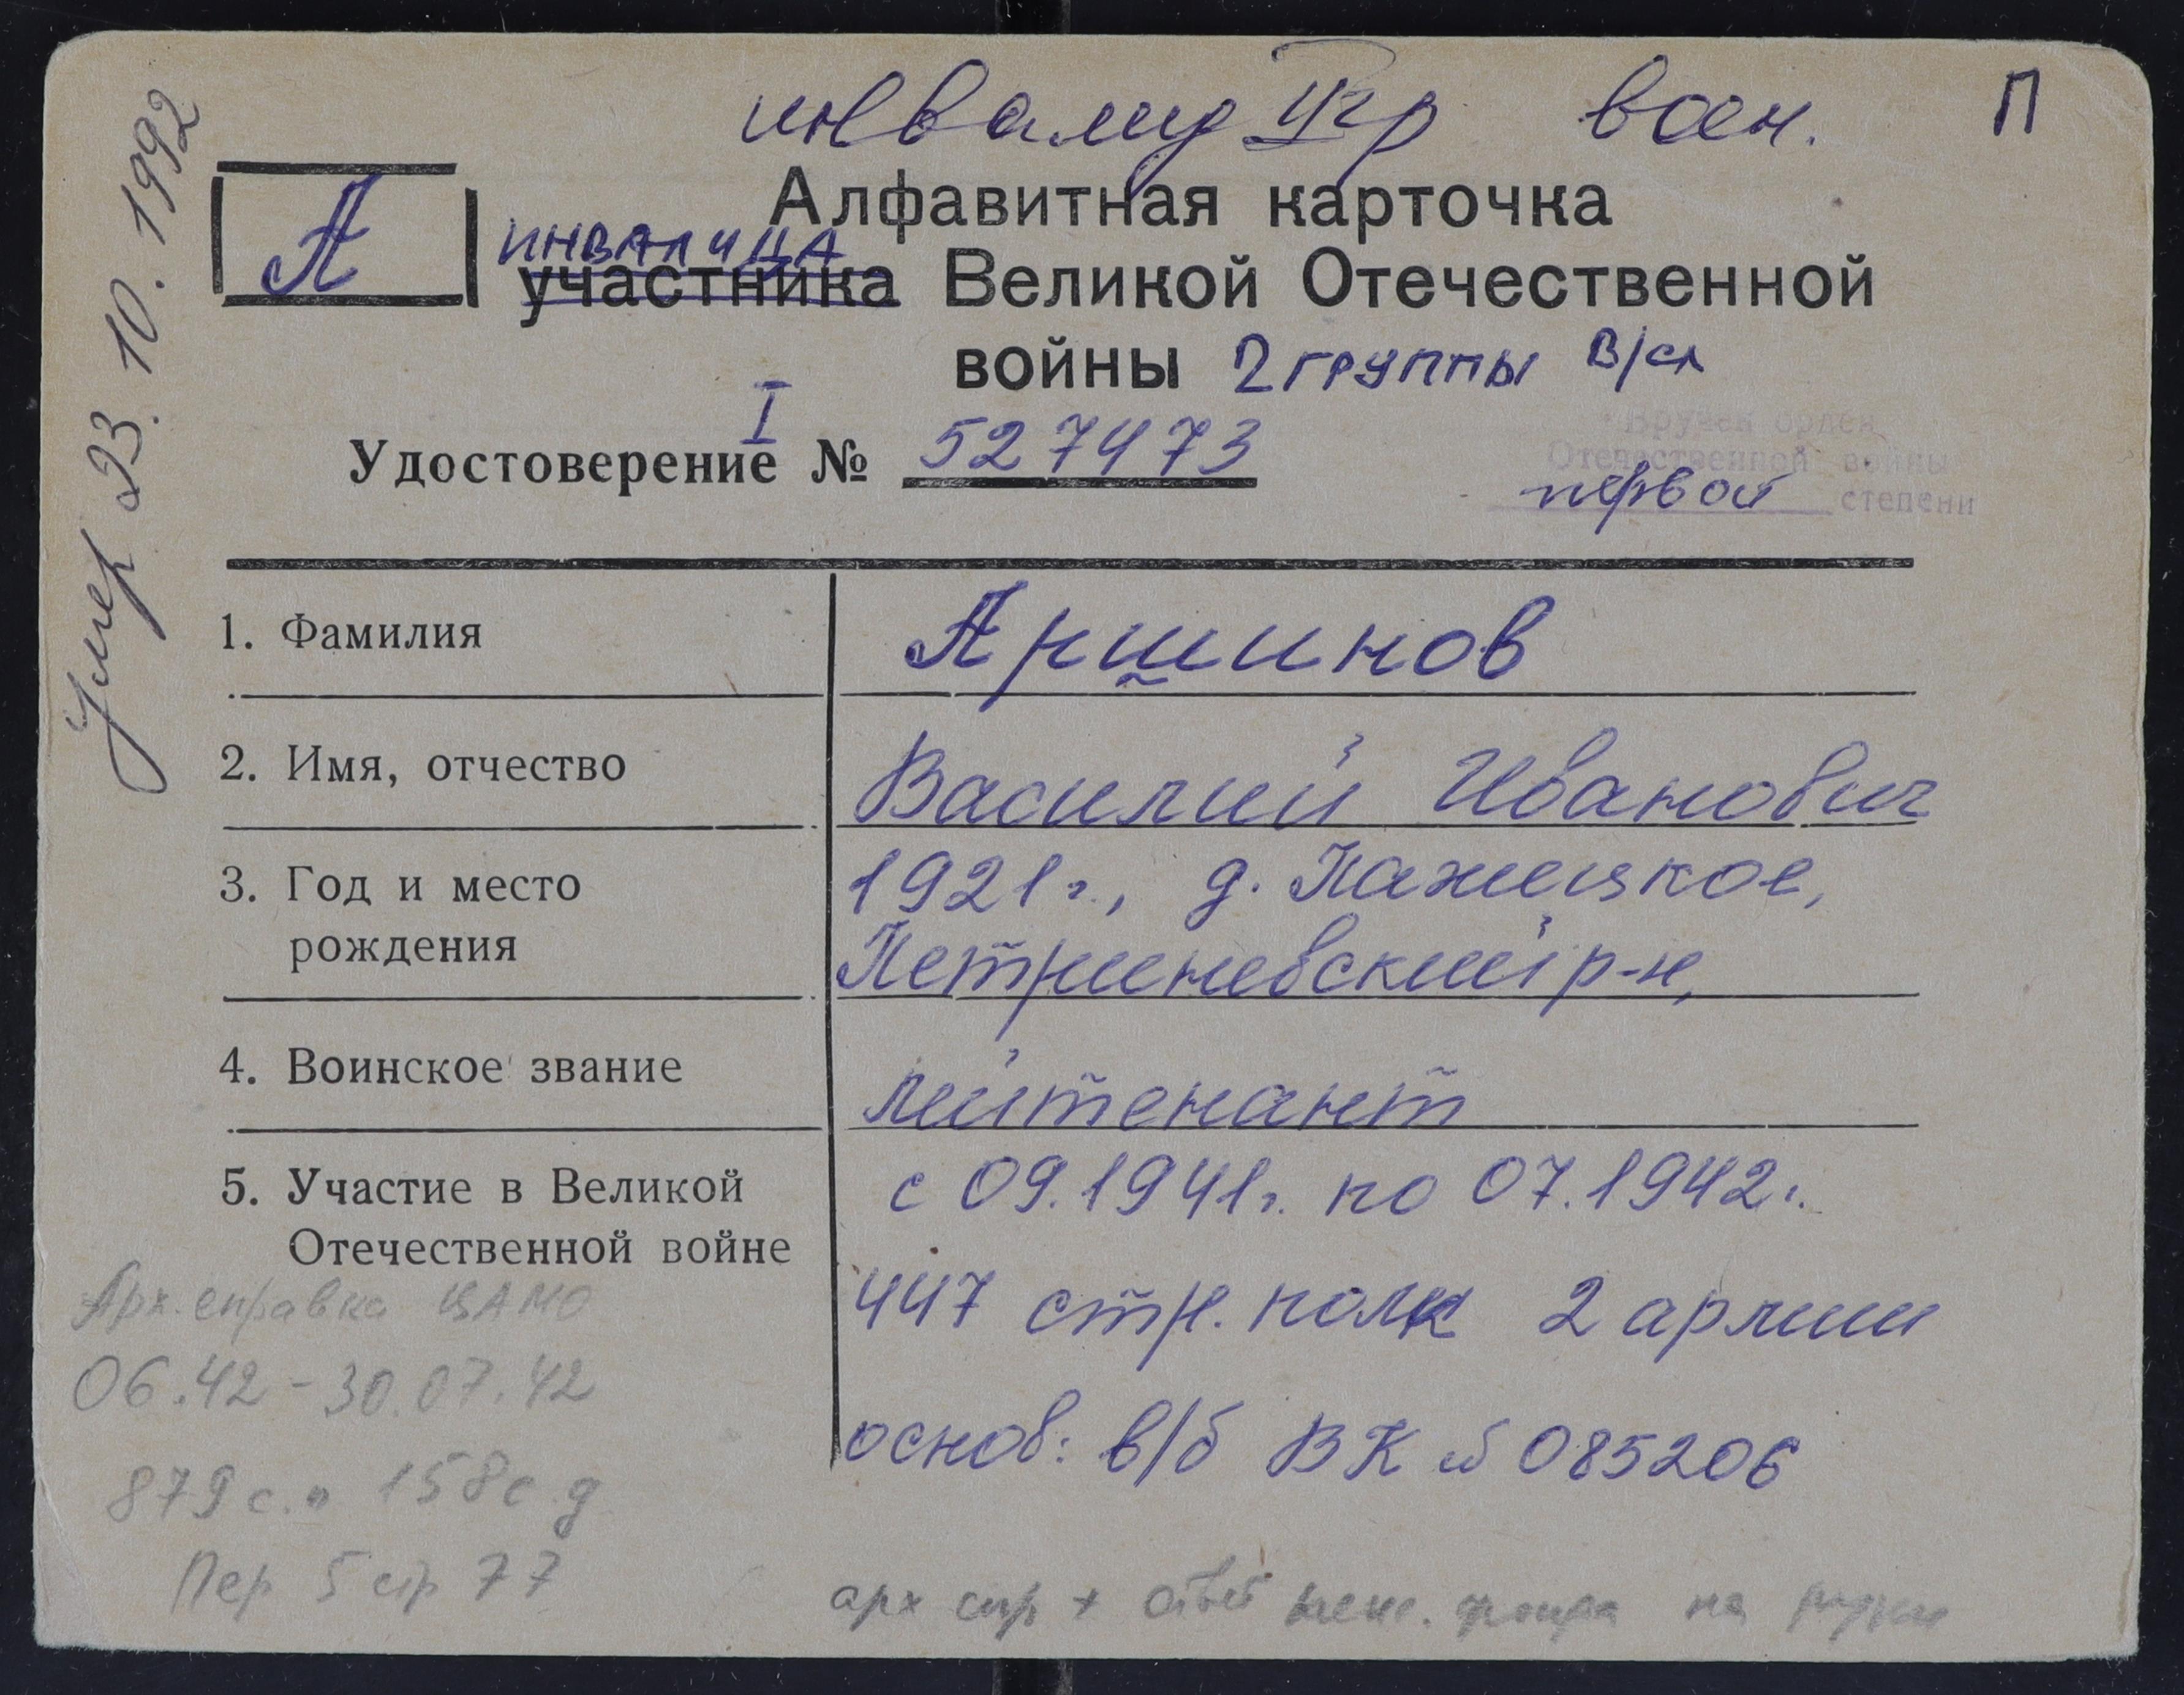 инвалид II гр воен. П
Умер 23.10.1992
А
Алфавитная карточка
инвалида
участника Великой Отечественной
войны 2 группы в/сл
I
Удостоверение № 527473
Вручен орден
Отечественной войны
первой степени
1. Фамилия Аршинов
2. Имя, отчество Василий Иванович
3. Год и место 1921г., д. Пажецкое,
рождения Петриневский р-н,
4. Воинское звание лейтенант
5. Участие в Великой с 09.1941г. по 07.1942г.
Отечественной войне
447 стр. полк 2 армии
основ: в/б ВК № 085206
Арх. справка ЦАМО
06.42 - 30.07.42
879 с.п 158 с.д
Пер 5 стр 77
арх спр + ответ на